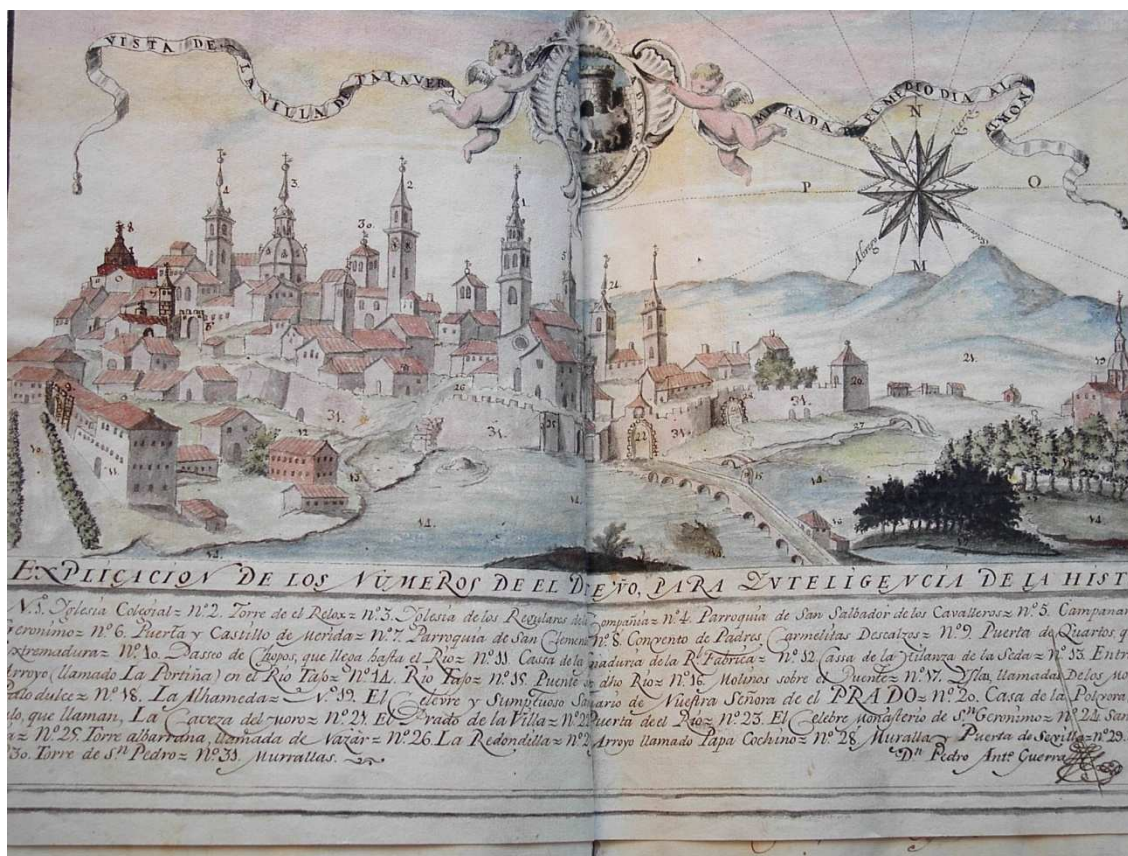 VISTA DE LA VILLA DE TALAVERA
MIRADA EL MEDIO DIA AL NORTE
N
P O
M
Abrego
EXPLICACION DE LOS NUMEROS DE EL DI EÑO, PARA YNTELIGENCIA DE LA HIST
N.º 1. Yglesia Colegial = nº 2. Torre de el Relox = nº 3. Yglesia de los Regulares de la Compañia = nº 4. Parroquia de San Salbador de los Cavalleros = nº 5. Campanar
Geronimo = nº 6. Puerta y Castillo de Merida = nº 7. Parroquia de San Clemen nº 8. Convento de Padres Carmelitas Descalzos = nº 9. Puerta de Quartos, q
Extremadura = nº 10. Passeo de Chopos, que llega hasta el Rio = nº 11. Cassa de la naduria de la Rl. Fabrica = nº 12 Cassa de la Hilanza de la Seda = nº 13. Entr
Arroyo (llamado La Portiña) en el Rio Tajo = nº 14. Rio Tajo = nº 15. Puente s dho Rio = nº 16. Molinos sobre el Puente = nº 17. Yslas, llamadas De los Mo
Palo dulce = nº 18. La Alhameda = Nº 19. El Celevre y Sumptuoso San uario de Nuestra Señora de el PRADO = nº 20. Casa de la Polvora
do, que llaman, La Caveza del moro = nº 21. El Prado de la Villa = nº 22 Puerta de el Rio = nº 23. El Celebre Monasterio de Sn. Geronimo = nº 24. San
a = nº 25. Torre albarrana, llamada de Nazàr = nº 26. La Redondilla = nº 2 Arroyo llamado Papa Cochino = nº 28 Muralla Puerta de Sevilla = nº 29.
30. Torre de Sn. Pedro = nº 31. Murrallas.
Dn. Pedro Antº. Guerra